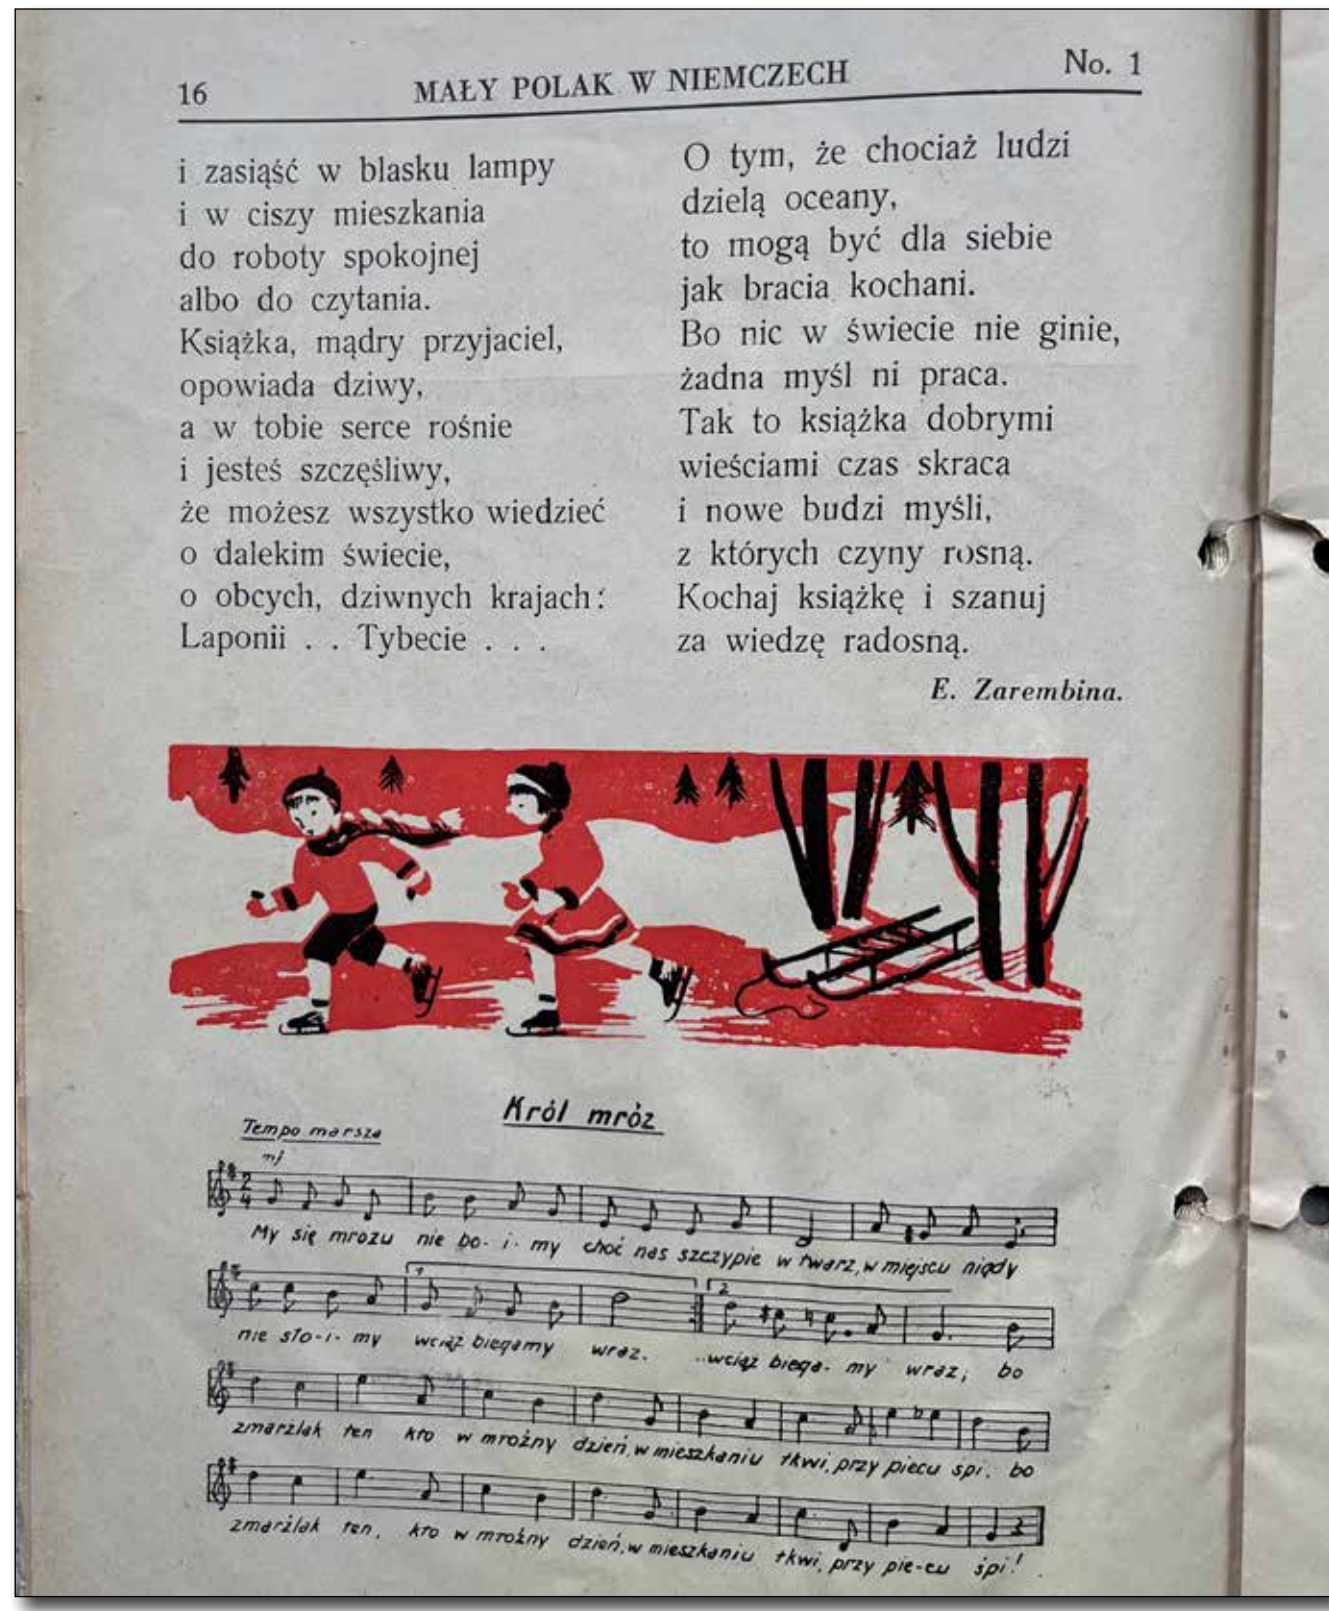 16
MAŁY POLAK W NIEMCZECH
No. 1
i zasiąść w blasku lampy
i w ciszy mieszkania
do roboty spokojnej
albo do czytania.
Książka, mądry przyjaciel,
opowiada dziwy,
a w tobie serce rośnie
i jesteś szczęśliwy,
że możesz wszystko wiedzieć
o dalekim świecie,
o obcych, dziwnych krajach:
Laponii . . Tybecie . . .
O tym, że chociaż ludzi
dzielą oceany,
to mogą być dla siebie
jak bracia kochani.
Bo nic w świecie nie ginie,
żadna myśl ni praca.
Tak to książka dobrymi
wieściami czas skraca
i nowe budzi myśli,
z których czyny rosną.
Kochaj książkę i szanuj
za wiedzę radosną.
E. Zarembina.
Król mróz
Tempo marsza
mf
2
4
My się mrozu nie bo-i-my choć nas szczypie w twarz, w miejscu nigdy
1
2
nie sto-i-my wciąż biegamy wraz. ..wciąż biega-my wraz; bo
zmarźlak ten kto w mroźny dzień, w mieszkaniu tkwi, przy piecu śpi. bo
zmarźlak ten, kto w mroźny dzień, w mieszkaniu tkwi, przy pie-cu śpi!